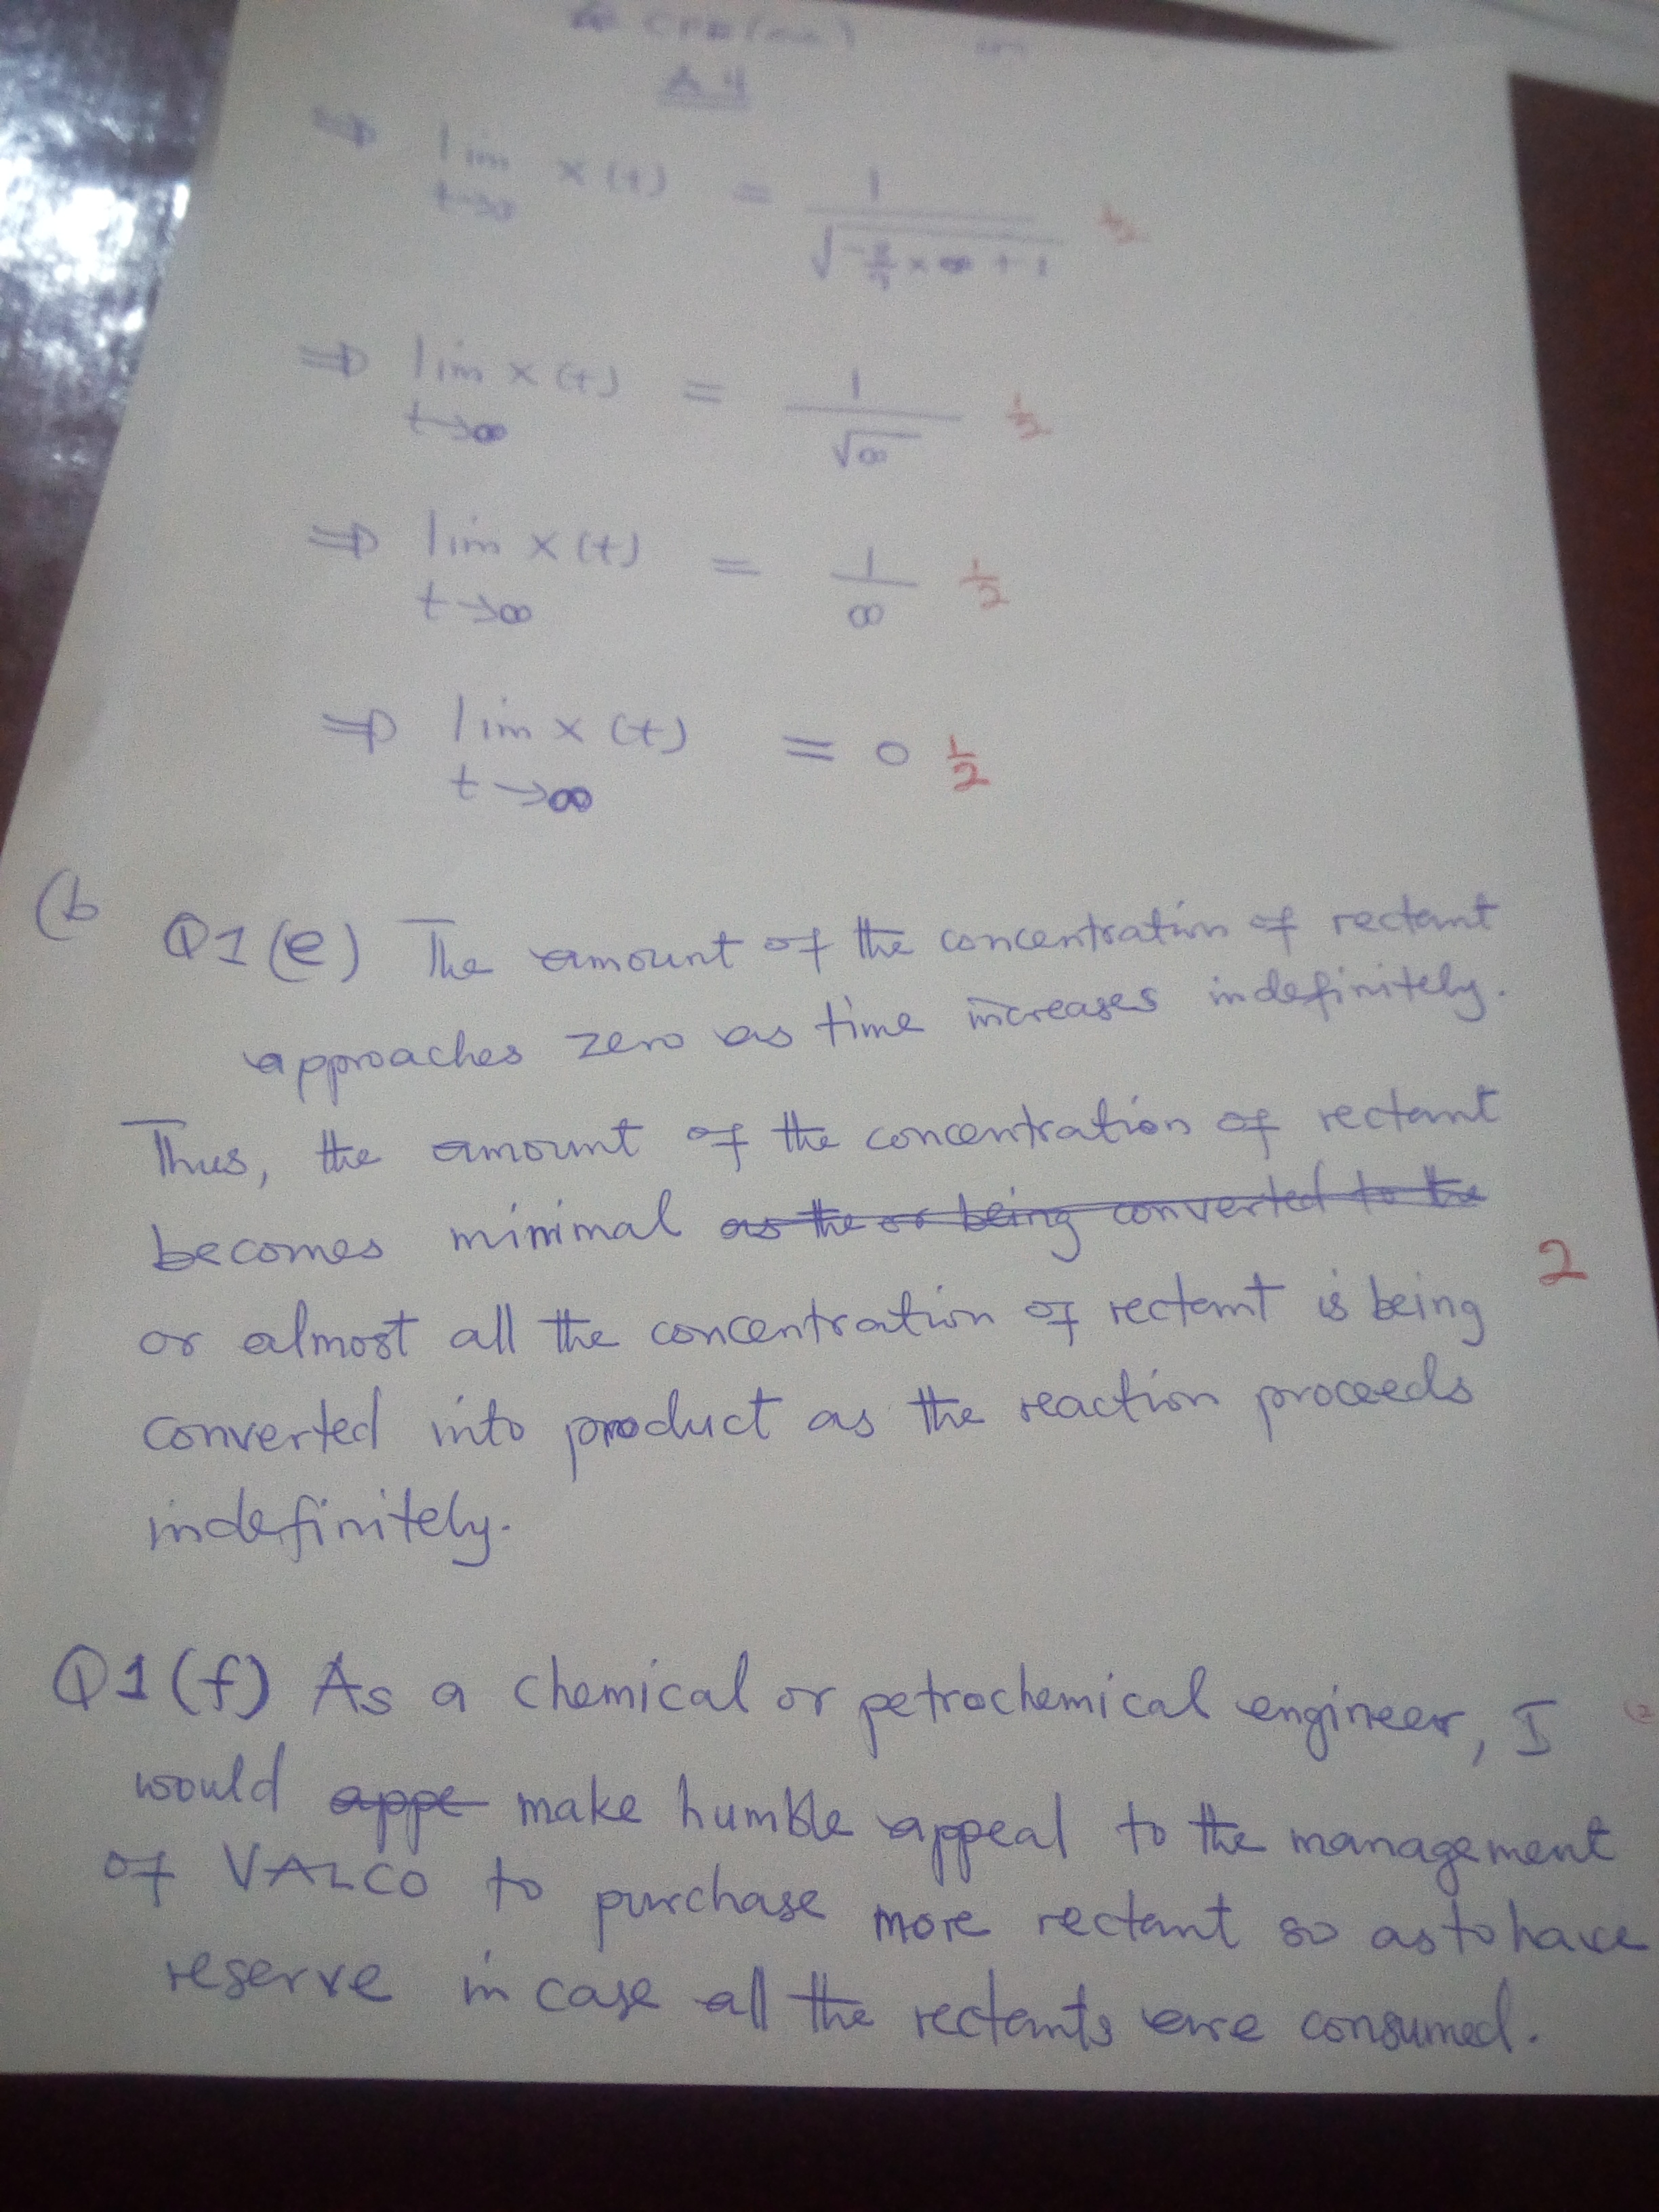 A4
⇒ lim x(t) = 1 ½
t→∞ √ × ∞ + 1
⇒ lim x(t) = 1 ½
t→∞ √∞
⇒ lim x(t) = 1 ½
t→∞ ∞
⇒ lim x(t) = 0 ½
t→∞
(b
Q1(e) The amount of the concentration of rectant
approaches zero as time increases indefinitely.
Thus, the amount of the concentration of rectant
becomes minimal as the or being converted to the
2
or almost all the concentration of rectant is being
converted into product as the reaction proceeds
indefinitely.
Q1(f) As a chemical or petrochemical engineer, I
would appe make humble appeal to the management
of VALCO to purchase more rectant so as to have
reserve in case all the rectants are consumed.